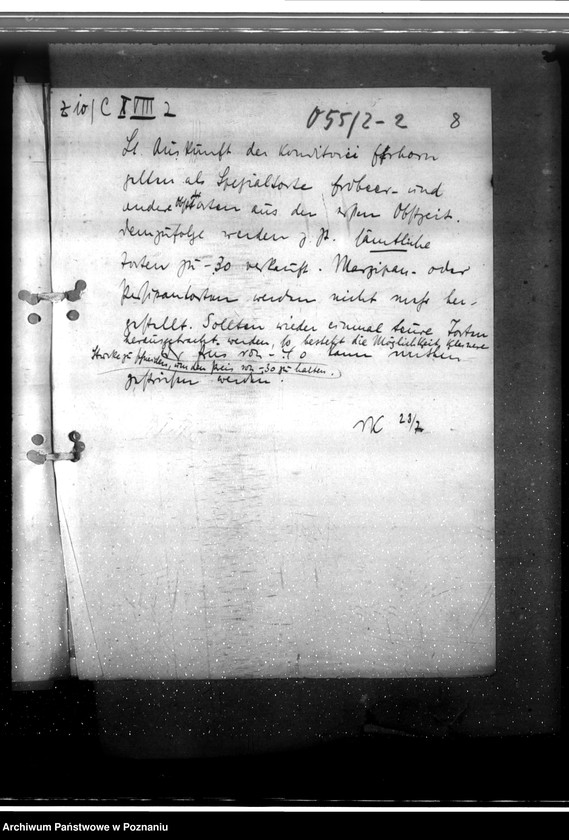 Z 10/C XVIII 2
055/2-2
8
Lt. Auskunft der Konditorei
gelten als Spezialtorte Erdbeer- und
andere Obsttorten aus der ersten Obstzeit.
Demzufolge werden z. Zt. sämtliche
Torten zu -.30 verkauft. Marzipan- oder
Persipantorten werden nicht mehr her-
gestellt. Sollten wieder einmal teure Torten
herausgebracht werden, so besteht die Möglichkeit, kleinere
Stücke zu schneiden, um den Preis von -.30 zu halten.
Der Preis von -.40 kann mithin
gestrichen werden.
23/7
Archiwum Państwowe w Poznaniu